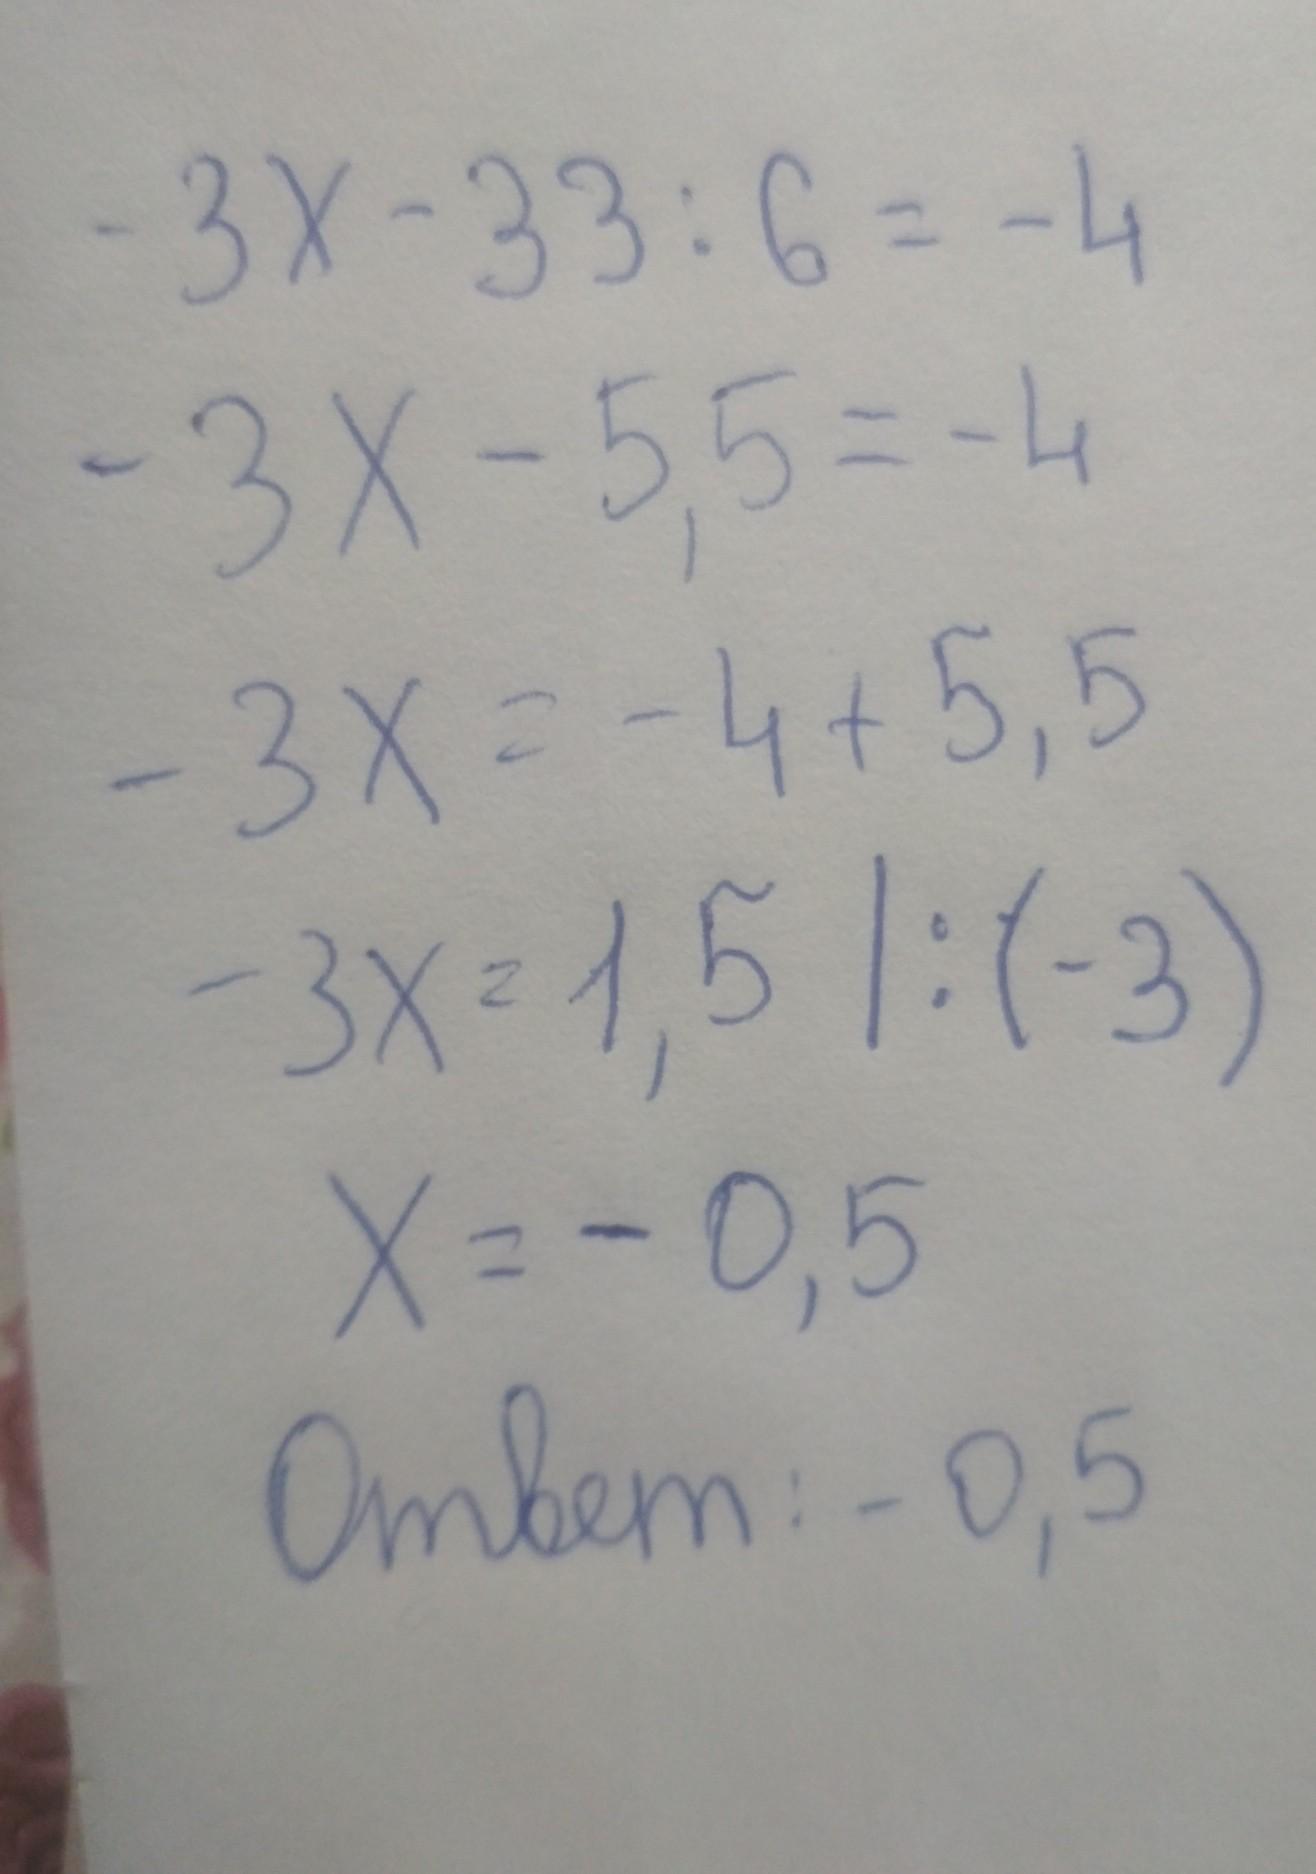 -3x-33:6=-4
-3x-5,5=-4
-3x=-4+5,5
-3x=1,5 |:(-3)
x=-0,5
Ответ:-0,5